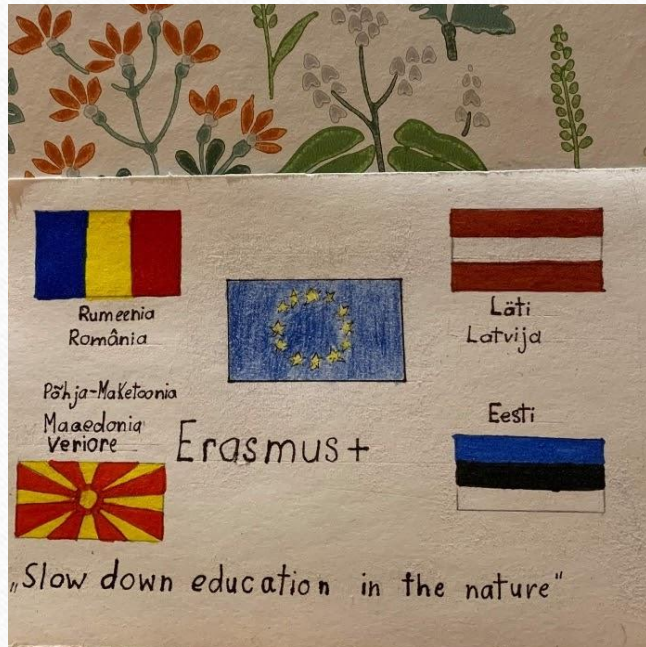 Rumeenia
România
Läti
Latvija
Põhja-Maketoonia
Maaedonia
Veriore
Eesti
Erasmus+
„Slow down education in the nature"